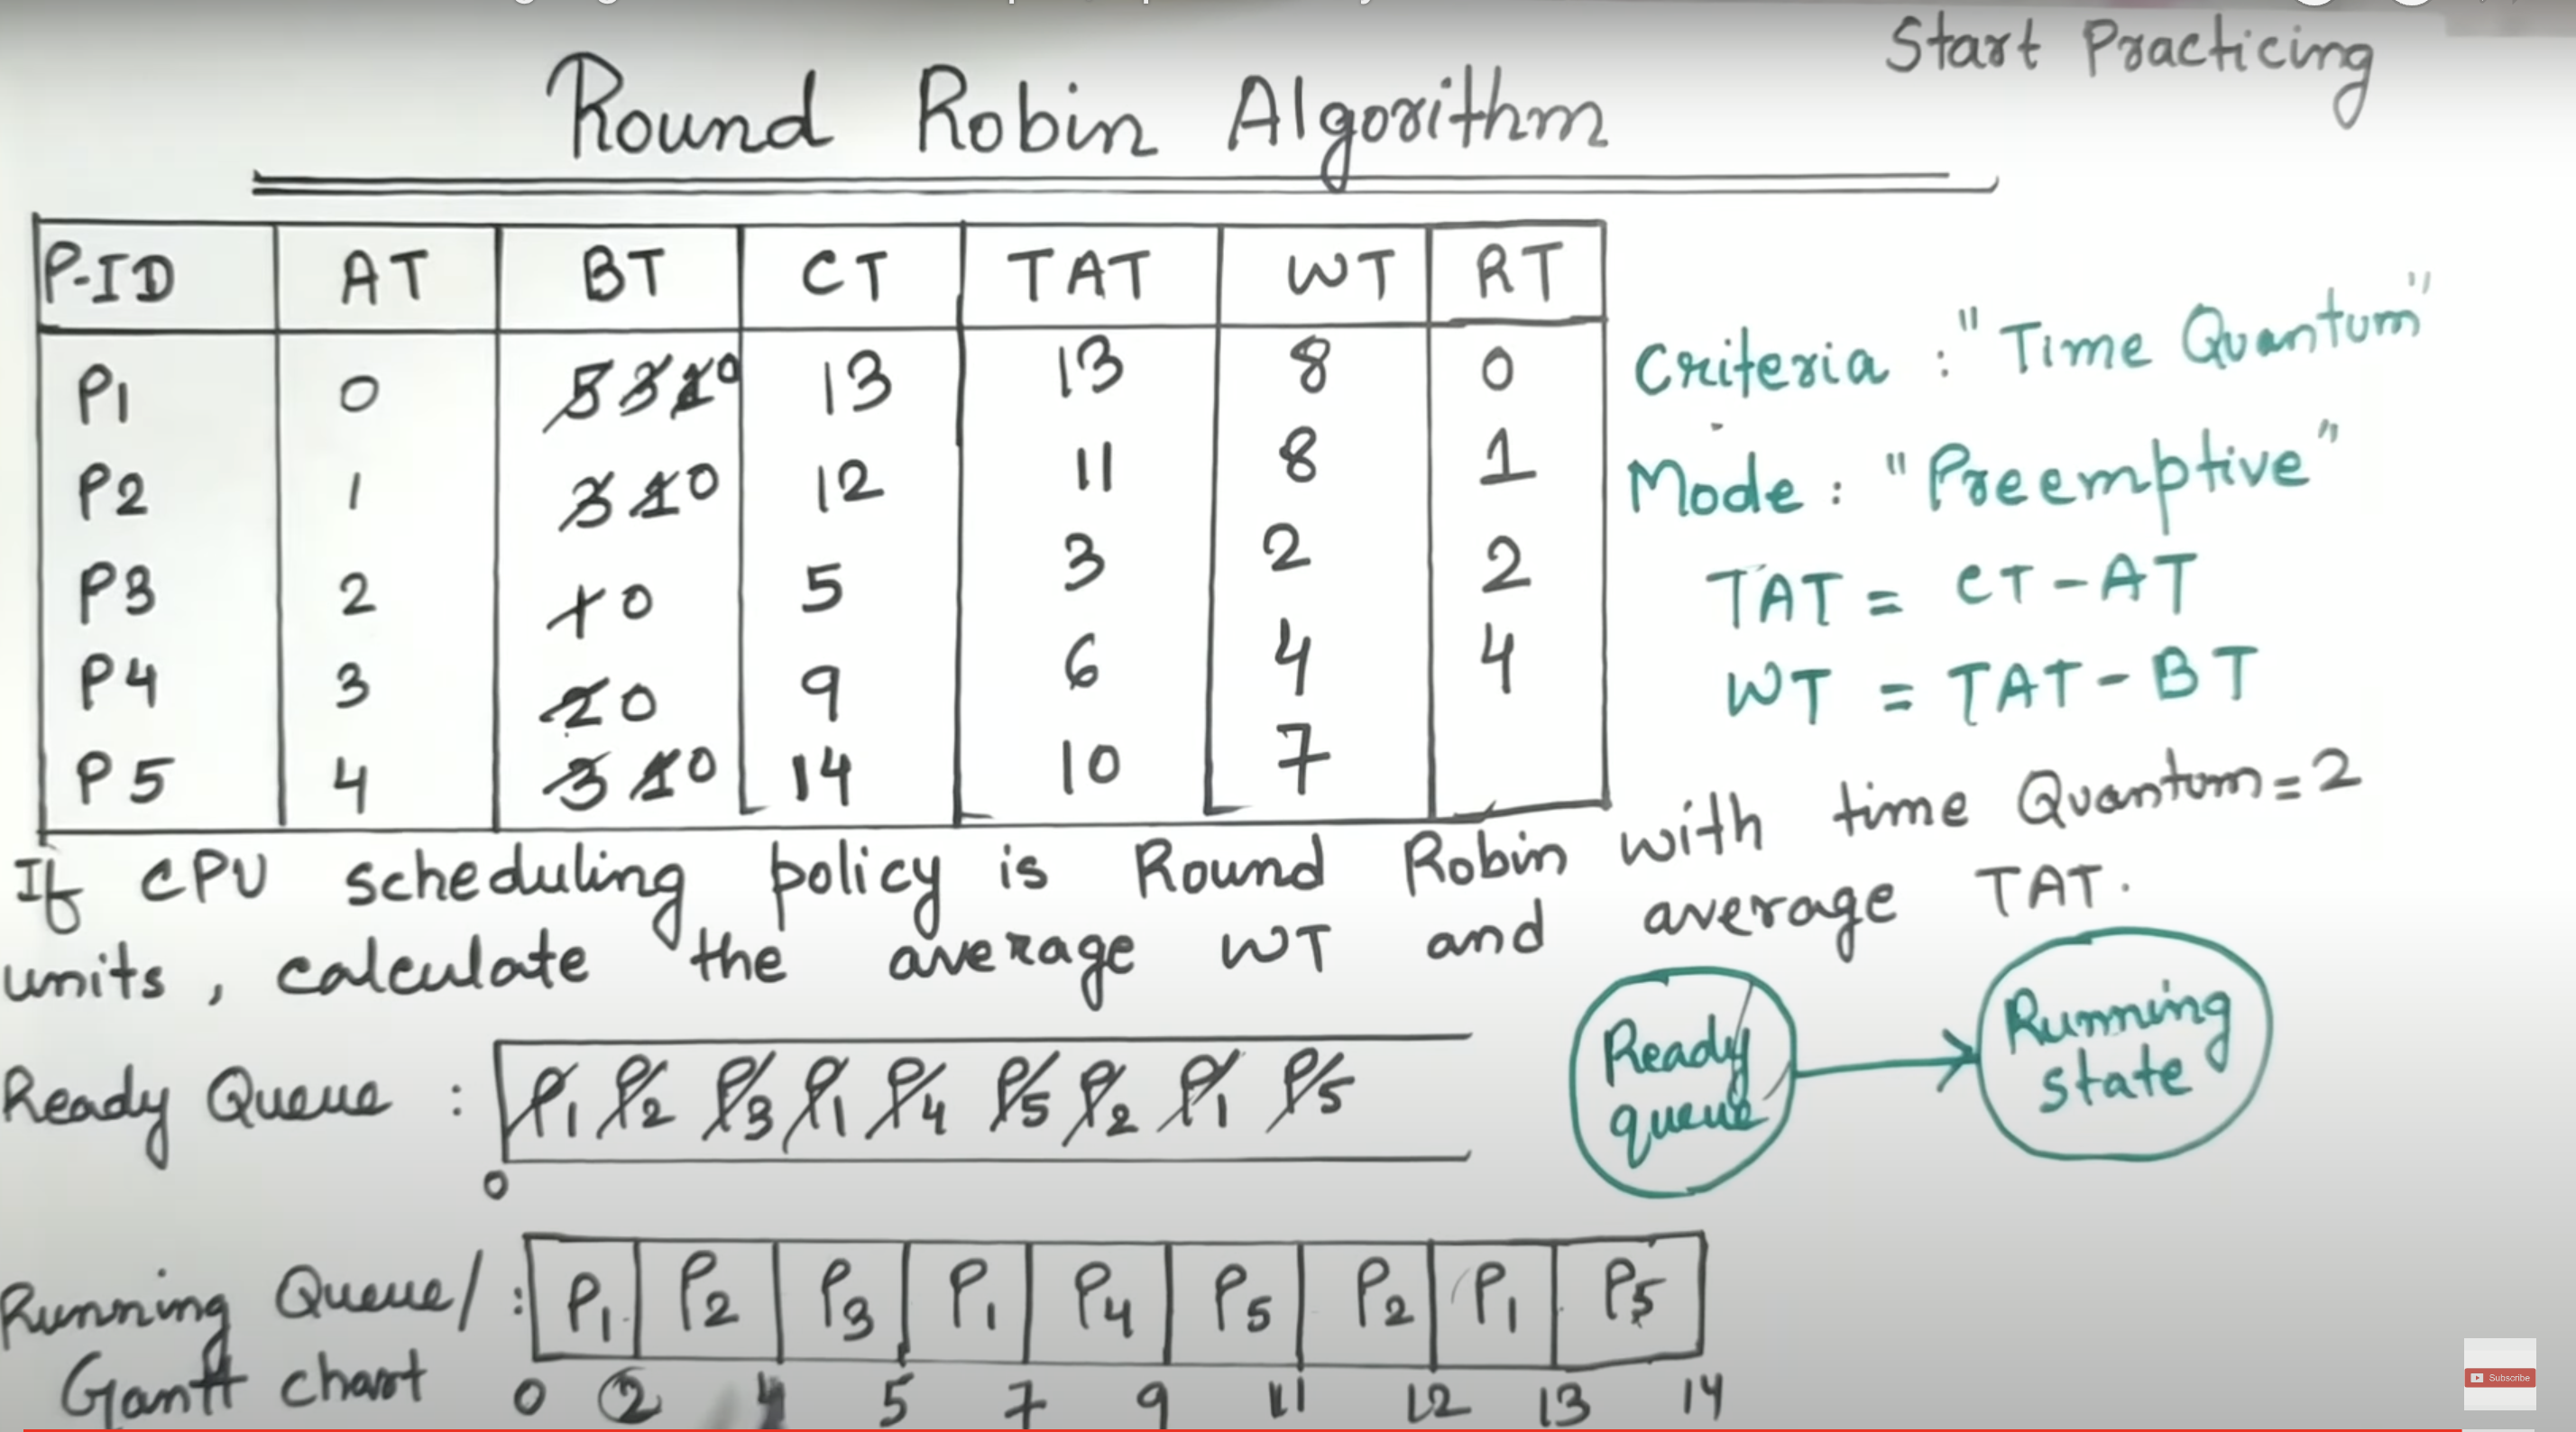 Start Practicing
Round Robin Algorithm
P-ID AT BT CT TAT WT RT
P1 0 5 3 1 0 13 13 8 0
P2 1 3 1 0 12 11 8 1
P3 2 1 0 5 3 2 2
P4 3 2 0 9 6 4 4
P5 4 3 1 0 14 10 7
Criteria : "Time Quantum"
Mode : "Preemptive"
TAT = CT - AT
WT = TAT - BT
If CPU scheduling policy is Round Robin with time Quantum = 2
units, calculate the average WT and average TAT.
Ready Queue : P1 P2 P3 P1 P4 P5 P2 P1 P5
0
Ready queue
Running state
Running Queue/ : P1 P2 P3 P1 P4 P5 P2 P1 P5
Gantt chart 0 2 4 5 7 9 11 12 13 14
Subscribe